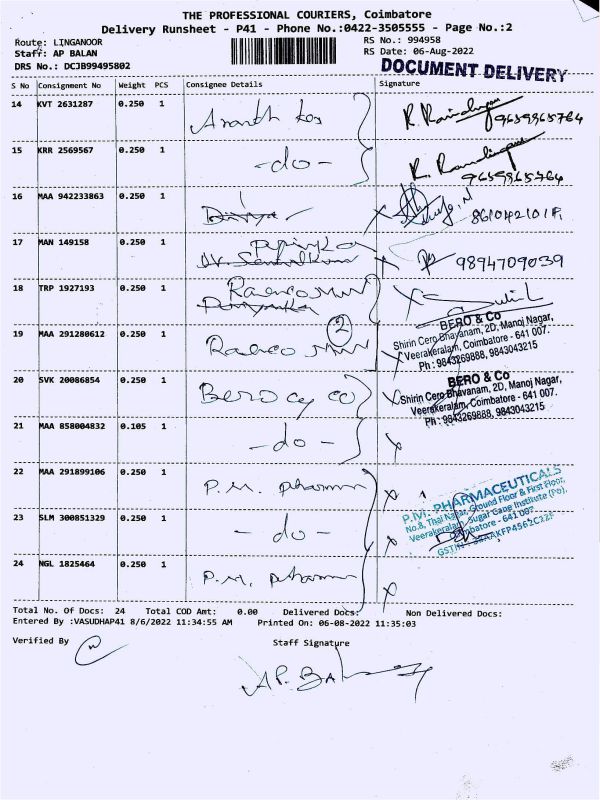 THE PROFESSIONAL COURIERS, Coimbatore
Delivery Runsheet - P41 - Phone No.:0422-3505555 - Page No.:2
Route: LINGANOOR RS No.: 994958
Staff: AP BALAN RS Date: 06-Aug-2022
DRS No.: DCJB99495802 DOCUMENT DELIVERY
S No Consignment No Weight PCS Consignee Details Signature
14 KVT 2631287 0.250 1 9659965764
15 KRR 2569567 0.250 1 -do- 9659965764
16 MAA 942233863 0.250 1 Divya
17 MAN 149158 0.250 1 9894709039
18 TRP 1927193 0.250 1
BERO & Co
Shirin Cero Bhavanam, 2D, Manoj Nagar,
19 MAA 291280612 0.250 1 2 Veerakeralam, Coimbatore - 641 007.
Ph : 9843269888, 9843043215
20 SVK 20086854 0.250 1 Bero cy co BERO & Co
Shirin Cero Bhavanam, 2D, Manoj Nagar,
Veerakeralam, Coimbatore - 641 007.
Ph : 9843269888, 9843043215
21 MAA 858004832 0.105 1 -do-
22 MAA 291899106 0.250 1 P.M. pharma
P.M. PHARMACEUTICALS
No.8, Thai Nagar, Ground Floor & First Floor,
Veerakeralam, Sugar Cane Institute (Po),
Coimbatore - 641 007
23 SLM 300851329 0.250 1 -do- GSTIN
24 NGL 1825464 0.250 1 P.M. pharma
Total No. Of Docs: 24 Total COD Amt: 0.00 Delivered Docs: Non Delivered Docs:
Entered By :VASUDHAP41 8/6/2022 11:34:55 AM Printed On: 06-08-2022 11:35:03
Verified By Staff Signature
AP. Bal